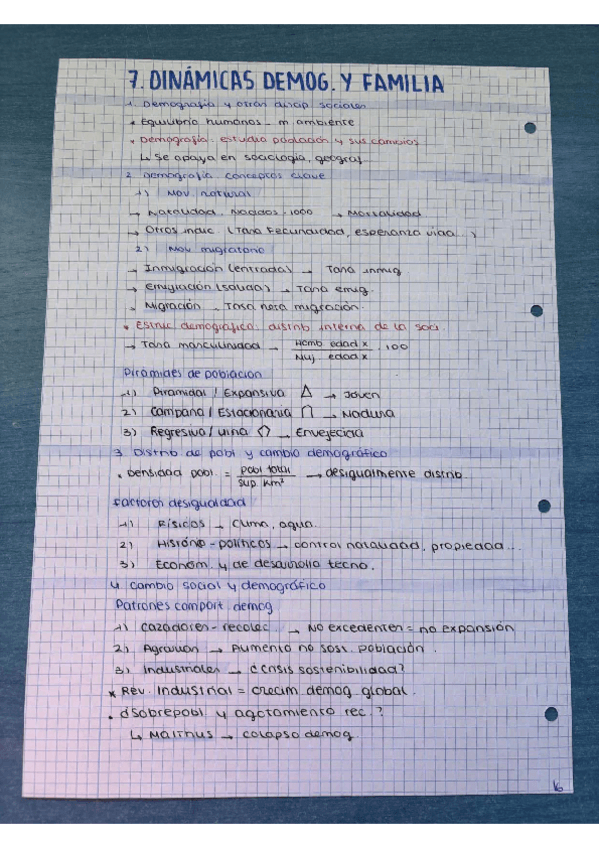 7. DINÁMICAS DEMOG. Y FAMILIA
1. Demografía y otras discip. sociales
* Equilibrio humanos _ m. ambiente
* Demografía: estudia población y sus cambios
↳ se apoya en sociología, geograf.
2. Demografía: conceptos clave
1) Mov. natural
→ Natalidad. Nacidos · 1000 → Mortalidad
→ Otros indic. (Tasa Fecundidad, esperanza vida...)
2) Mov. migratorio
→ Inmigración (entrada) → Tasa inmig.
→ Emigración (salida) → Tasa emig.
→ Migración → Tasa neta migración.
• Estruc. demográfica: distrib. interna de la soci.
→ Tasa masculinidad → Homb. edad x / Muj. edad x · 100
Pirámides de población
1) Piramidal / Expansiva △ → Joven
2) Campana / Estacionaria ∩ → Madura
3) Regresiva / urna → Envejecida
3. Distrib. de pobl. y cambio demográfico
• Densidad pobl. = pobl. total / sup. Km² → desigualmente distrib.
Factores desigualdad
1) Físicos → clima, agua.
2) Histórico-políticos → control natalidad, propiedad...
3) Económ. y de desarrollo tecno.
4. Cambio social y demográfico
Patrones comport. demog.
1) Cazadores-recolec. → No excedentes = no expansión
2) Agrarian → Aumento no sost. población.
3) Industriales → ¿Crisis sostenibilidad?
* Rev. Industrial = crecim. demog. global.
• ¿Sobrepobl. y agotamiento rec.?
↳ Malthus → colapso demog.
16